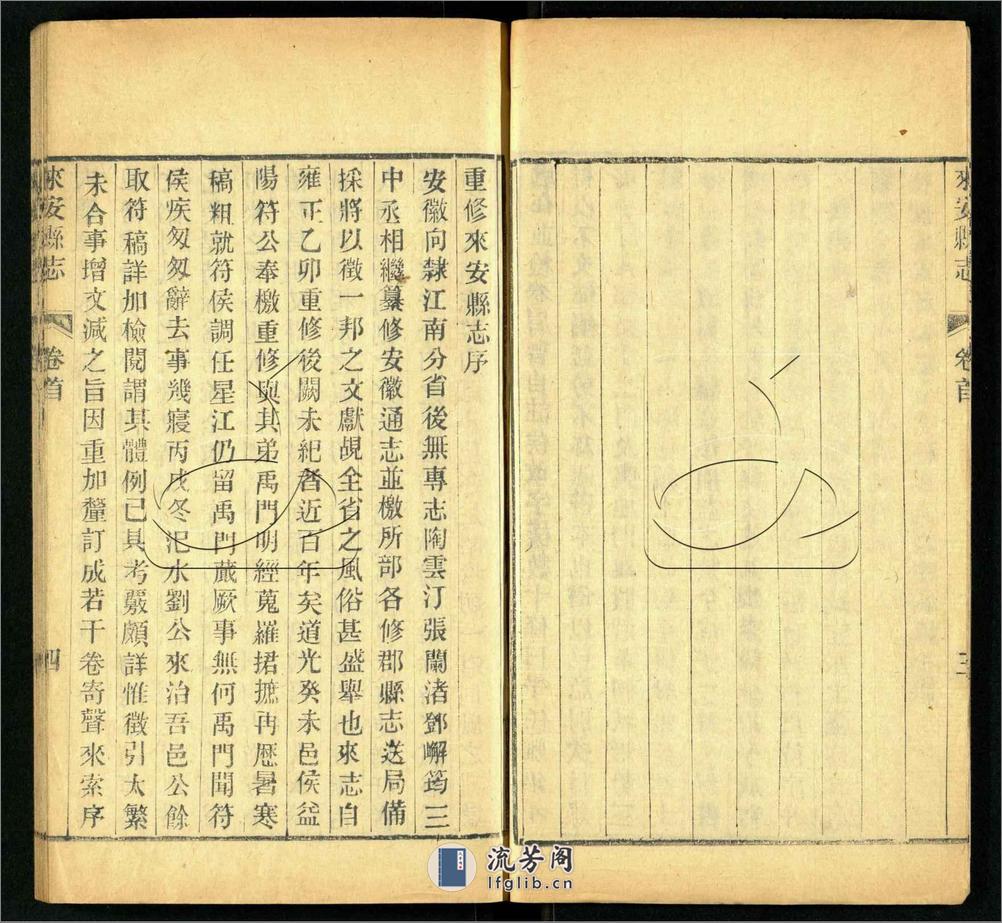 來安縣志
卷首
三
重修來安縣志序
安徽向隸江南分省後無專志陶雲汀張蘭渚鄧嶰筠三
中丞相繼纂修安徽通志並檄所部各修郡縣志送局備
採將以徵一邦之文獻覘全省之風俗甚盛舉也來志自
雍正乙卯重修後闕未紀者近百年矣道光癸未邑侯益
陽符公奉檄重修與其弟禹門明經蒐羅捃摭再歷暑寒
稿粗就符侯調任星江仍留禹門蕆厥事無何禹門聞符
侯疾匆匆辭去事幾寢丙戌冬汜水劉公來治吾邑公餘
取符稿詳加檢閱謂其體例已具考覈頗詳惟徵引太繁
未合事增文減之旨因重加釐訂成若干卷寄聲來索序
來安縣志
卷首
四
流芳阁
lfglib.cn